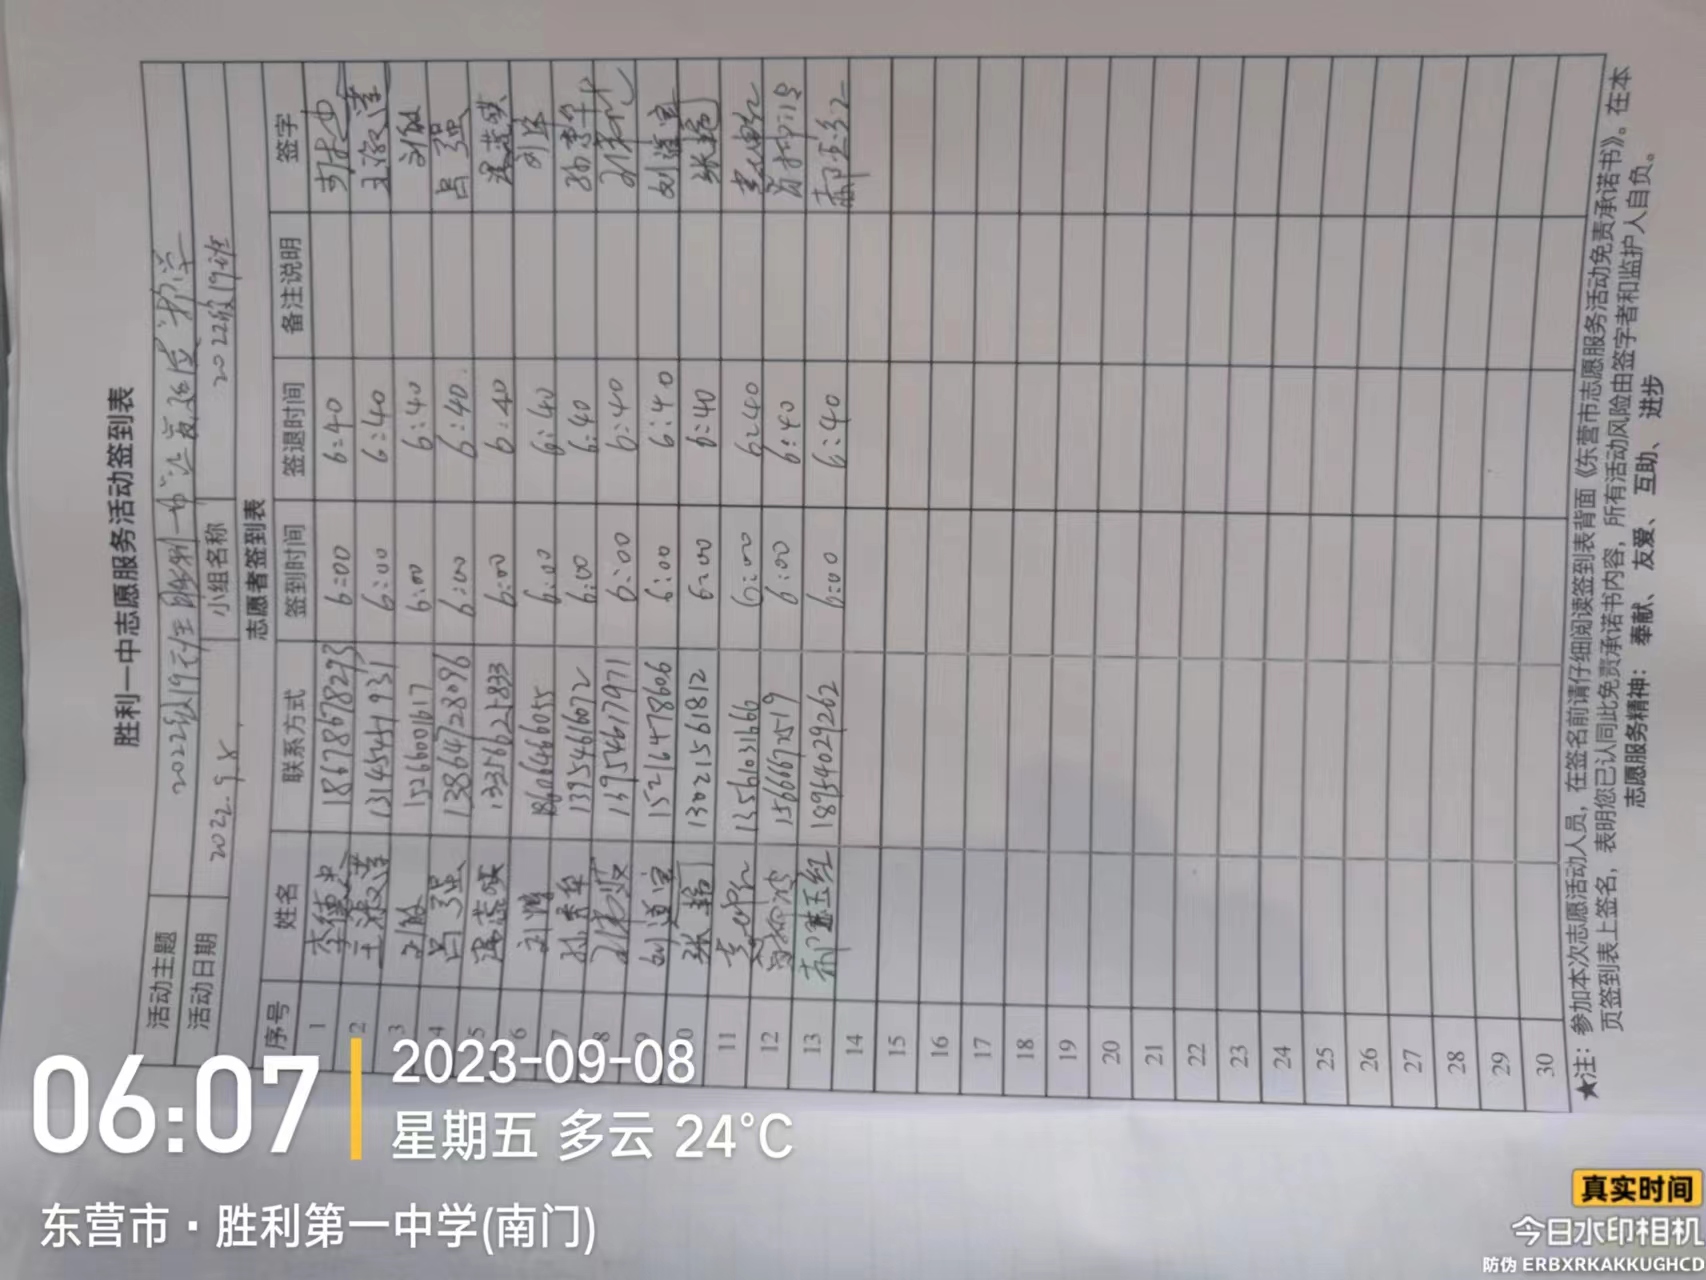 胜利一中志愿服务活动签到表
活动主题 2022级19
活动日期 2022.9.8 小组名称 2022级19班
志愿者签到表
序号 姓名 联系方式 签到时间 签退时间 备注说明 签字
1 18678678293 6:00 6:40
2 13145454931 6:00 6:40
3 刘敏 15266001617 6:00 6:40 刘敏
4 吕强 13864728096 6:00 6:40 吕强
5 13356621833 6:00 6:40
6 18606466055 6:00 6:40
7 孙秀华 13954616072 6:00 6:40 孙秀华
8 13954617971 6:00 6:40
9 刘道宣 15216478606 6:00 6:40 刘道宣
10 张韬 13021561812 6:00 6:40 张韬
11 13561031666 6:00 6:40
12 15666672519 6:00 6:40
13 郝玉红 18954029262 6:00 6:40 郝玉红
14
15
16
17
18
19
20
21
22
23
24
25
26
27
28
29
30
★注：参加本次志愿活动人员，在签名前请仔细阅读签到表背面《东营市志愿服务活动免责承诺书》。在本
页签到表上签名，表明您已认同此免责承诺书内容，所有活动风险由签字者和监护人自负。
志愿服务精神：奉献、友爱、互助、进步
06:07
2023-09-08
星期五 多云 24°C
东营市·胜利第一中学(南门)
真实时间
今日水印相机
防伪 ERBXRKAKKUGHCD